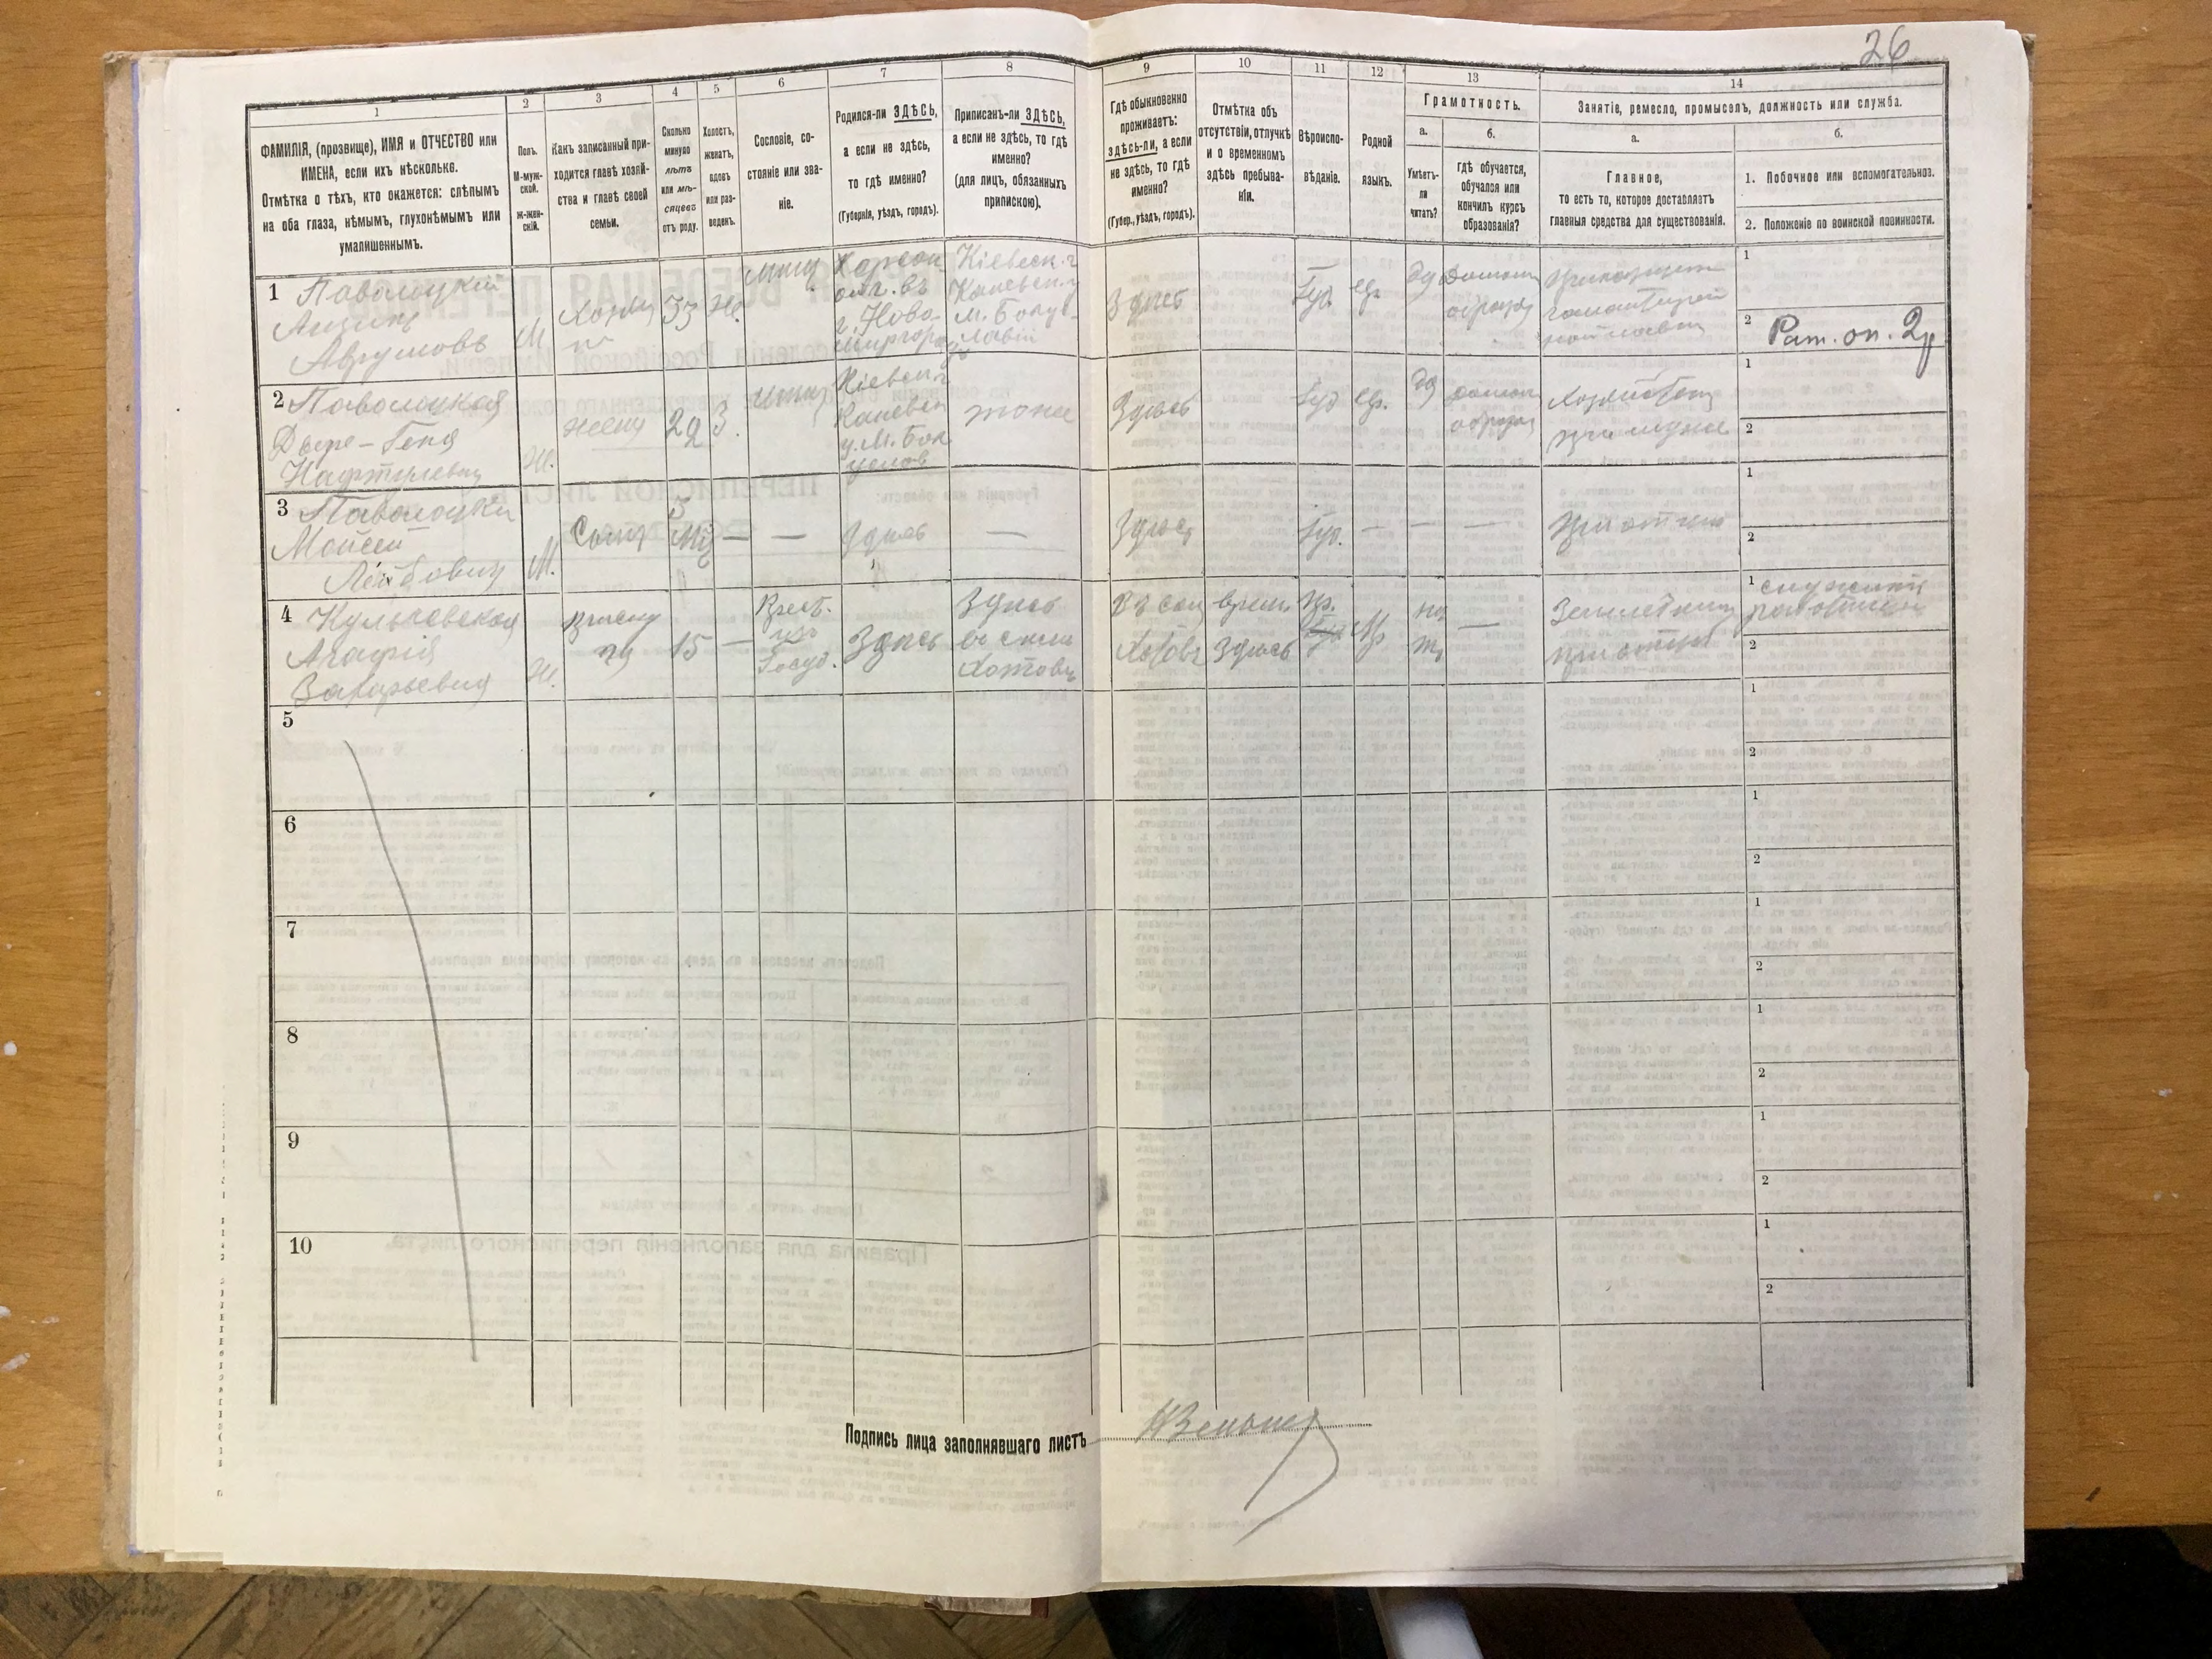 26
1
2
3
4
5
6
7
8
9
10
11
12
13
14
ФАМИЛІЯ, (прозвище), ИМЯ и ОТЧЕСТВО или
ИМЕНА, если ихъ нѣсколько.
Отмѣтка о тѣхъ, кто окажется: слѣпымъ
на оба глаза, нѣмымъ, глухонѣмымъ или
умалишеннымъ.
Полъ.
М-муж-
ской.
ж-жен-
скій.
Какъ записанный при-
ходится главѣ хозяй-
ства и главѣ своей
семьи.
Сколько
минуло
лѣтъ
или мѣ-
сяцевъ
отъ роду.
Холостъ,
женатъ,
вдовъ
или раз-
веденъ.
Сословіе, со-
стояніе или зва-
ніе.
Родился-ли ЗДѢСЬ,
а если не здѣсь,
то гдѣ именно?
(Губернія, уѣздъ, городъ).
Приписанъ-ли ЗДѢСЬ,
а если не здѣсь, то гдѣ
именно?
(для лицъ, обязанныхъ
припискою).
Гдѣ обыкновенно
проживаетъ:
здѣсь-ли, а если
не здѣсь, то гдѣ
именно?
(Губер., уѣздъ, городъ).
Отмѣтка объ
отсутствіи, отлучкѣ
и о временномъ
здѣсь пребыва-
ніи.
Вѣроиспо-
вѣданіе.
Родной
языкъ.
Грамотность.
а.
Умѣетъ-
ли
читать?
б.
гдѣ обучается,
обучался или
кончилъ курсъ
образованія?
Занятіе, ремесло, промыселъ, должность или служба.
а.
Главное,
то есть то, которое доставляетъ
главныя средства для существованія.
б.
1. Побочное или вспомогательное.
2. Положеніе по воинской повинности.
1 Паволоцкій
Аврумовъ
М
33
Херсон.
г. Ново-
миргородъ
Кіевск. г.
Каневск. у
м. Богус-
лавѣ
Здѣсь
Іуд.
евр.
да
1
2 Рат. оп. 2р
2 Паволоцкая
Ж.
жена
29
З.
Кіевск. г
Каневск
тоже
Здѣсь
Іуд
евр.
да
при мужѣ
1
2
3 Паволоцкій
Мойсей
Лейбовичъ
М.
Сынъ
5
Мѣ
—
—
Здѣсь
—
Здѣсь
Іуд.
—
—
—
при отцѣ
1
2
4 Кульчевская
Агафія
Захарьевна
Ж.
15
—
Крест.
изъ
Госуд.
Здѣсь
Здѣсь
въ селѣ
Хотовъ
Въ сел
Хотовъ
врем.
Здѣсь
пр.
Мр
нѣ
тъ
—
при отцѣ
1
2
5
1
2
6
1
2
7
1
2
8
1
2
9
1
2
10
1
2
Подпись лица заполнявшаго листъ